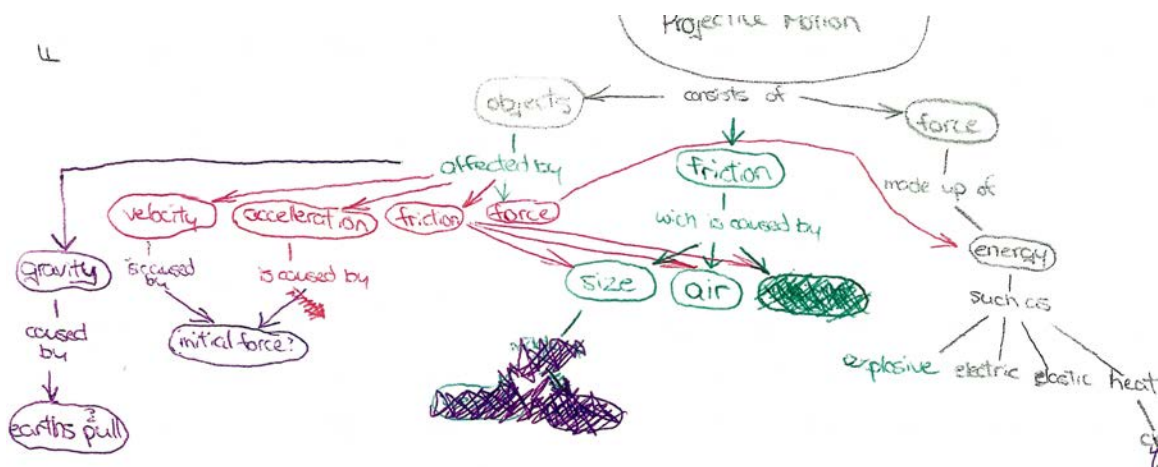 F
Projectile Motion
objects
consists of
force
affected by
friction
made up of
velocity
acceleration
friction
force
wich is caused by
energy
gravity
is caused
by
is caused by
size
air
such as
caused
by
initial force?
explosive electric elastic heat
earths pull
?